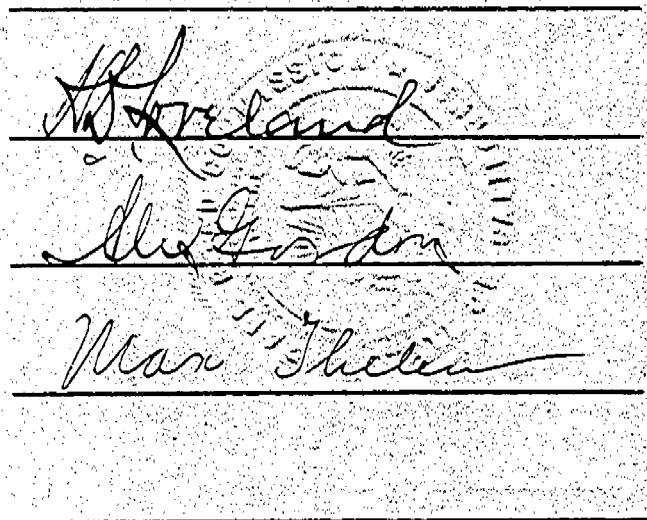 H.D. Loveland
Alex Gordon
Max Thelen